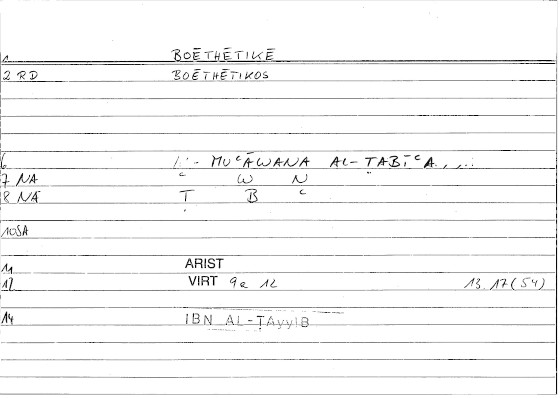 1 BOĒTHĒTIKĒ
2 RD BOĒTHĒTIKOS
6 MUʿĀWANA AL-ṬABĪʿA
7 NA ʿ W N
8 NA Ṭ B ʿ
10SA
11 ARIST
12 VIRT 9a 12 13.17(54)
14 IBN AL-ṬAyyIB